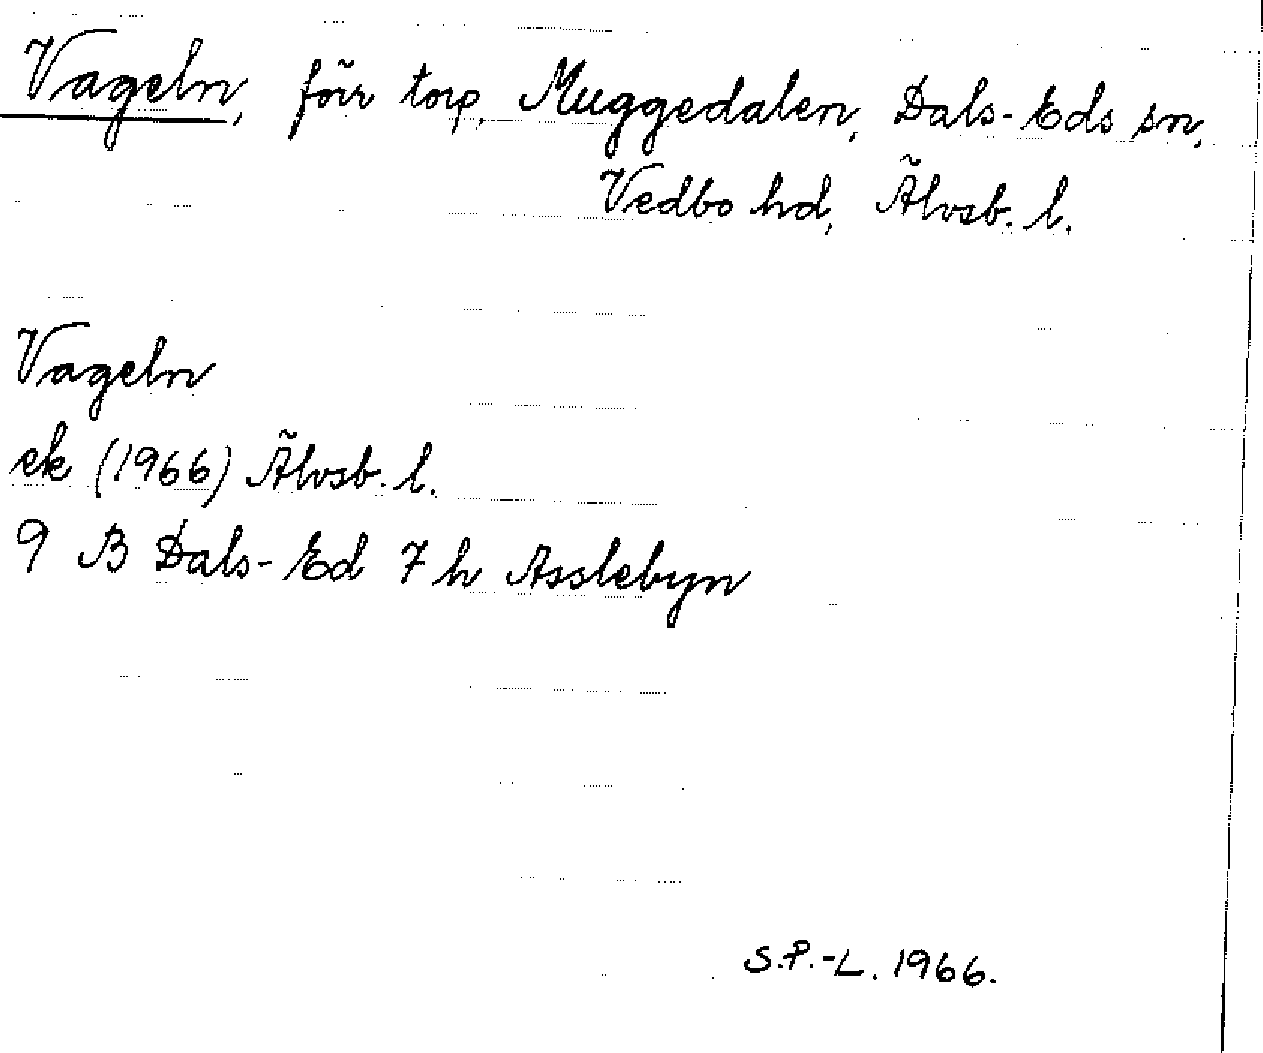 Vageln, förr torp, Muggedalen, Dals-Eds sn,
Vedbo hd, Älvsb. l.
Vageln
ek (1966) Älvsb. l.
9 B Dals-Ed 7 h Asslebyn
S.P.-L. 1966.